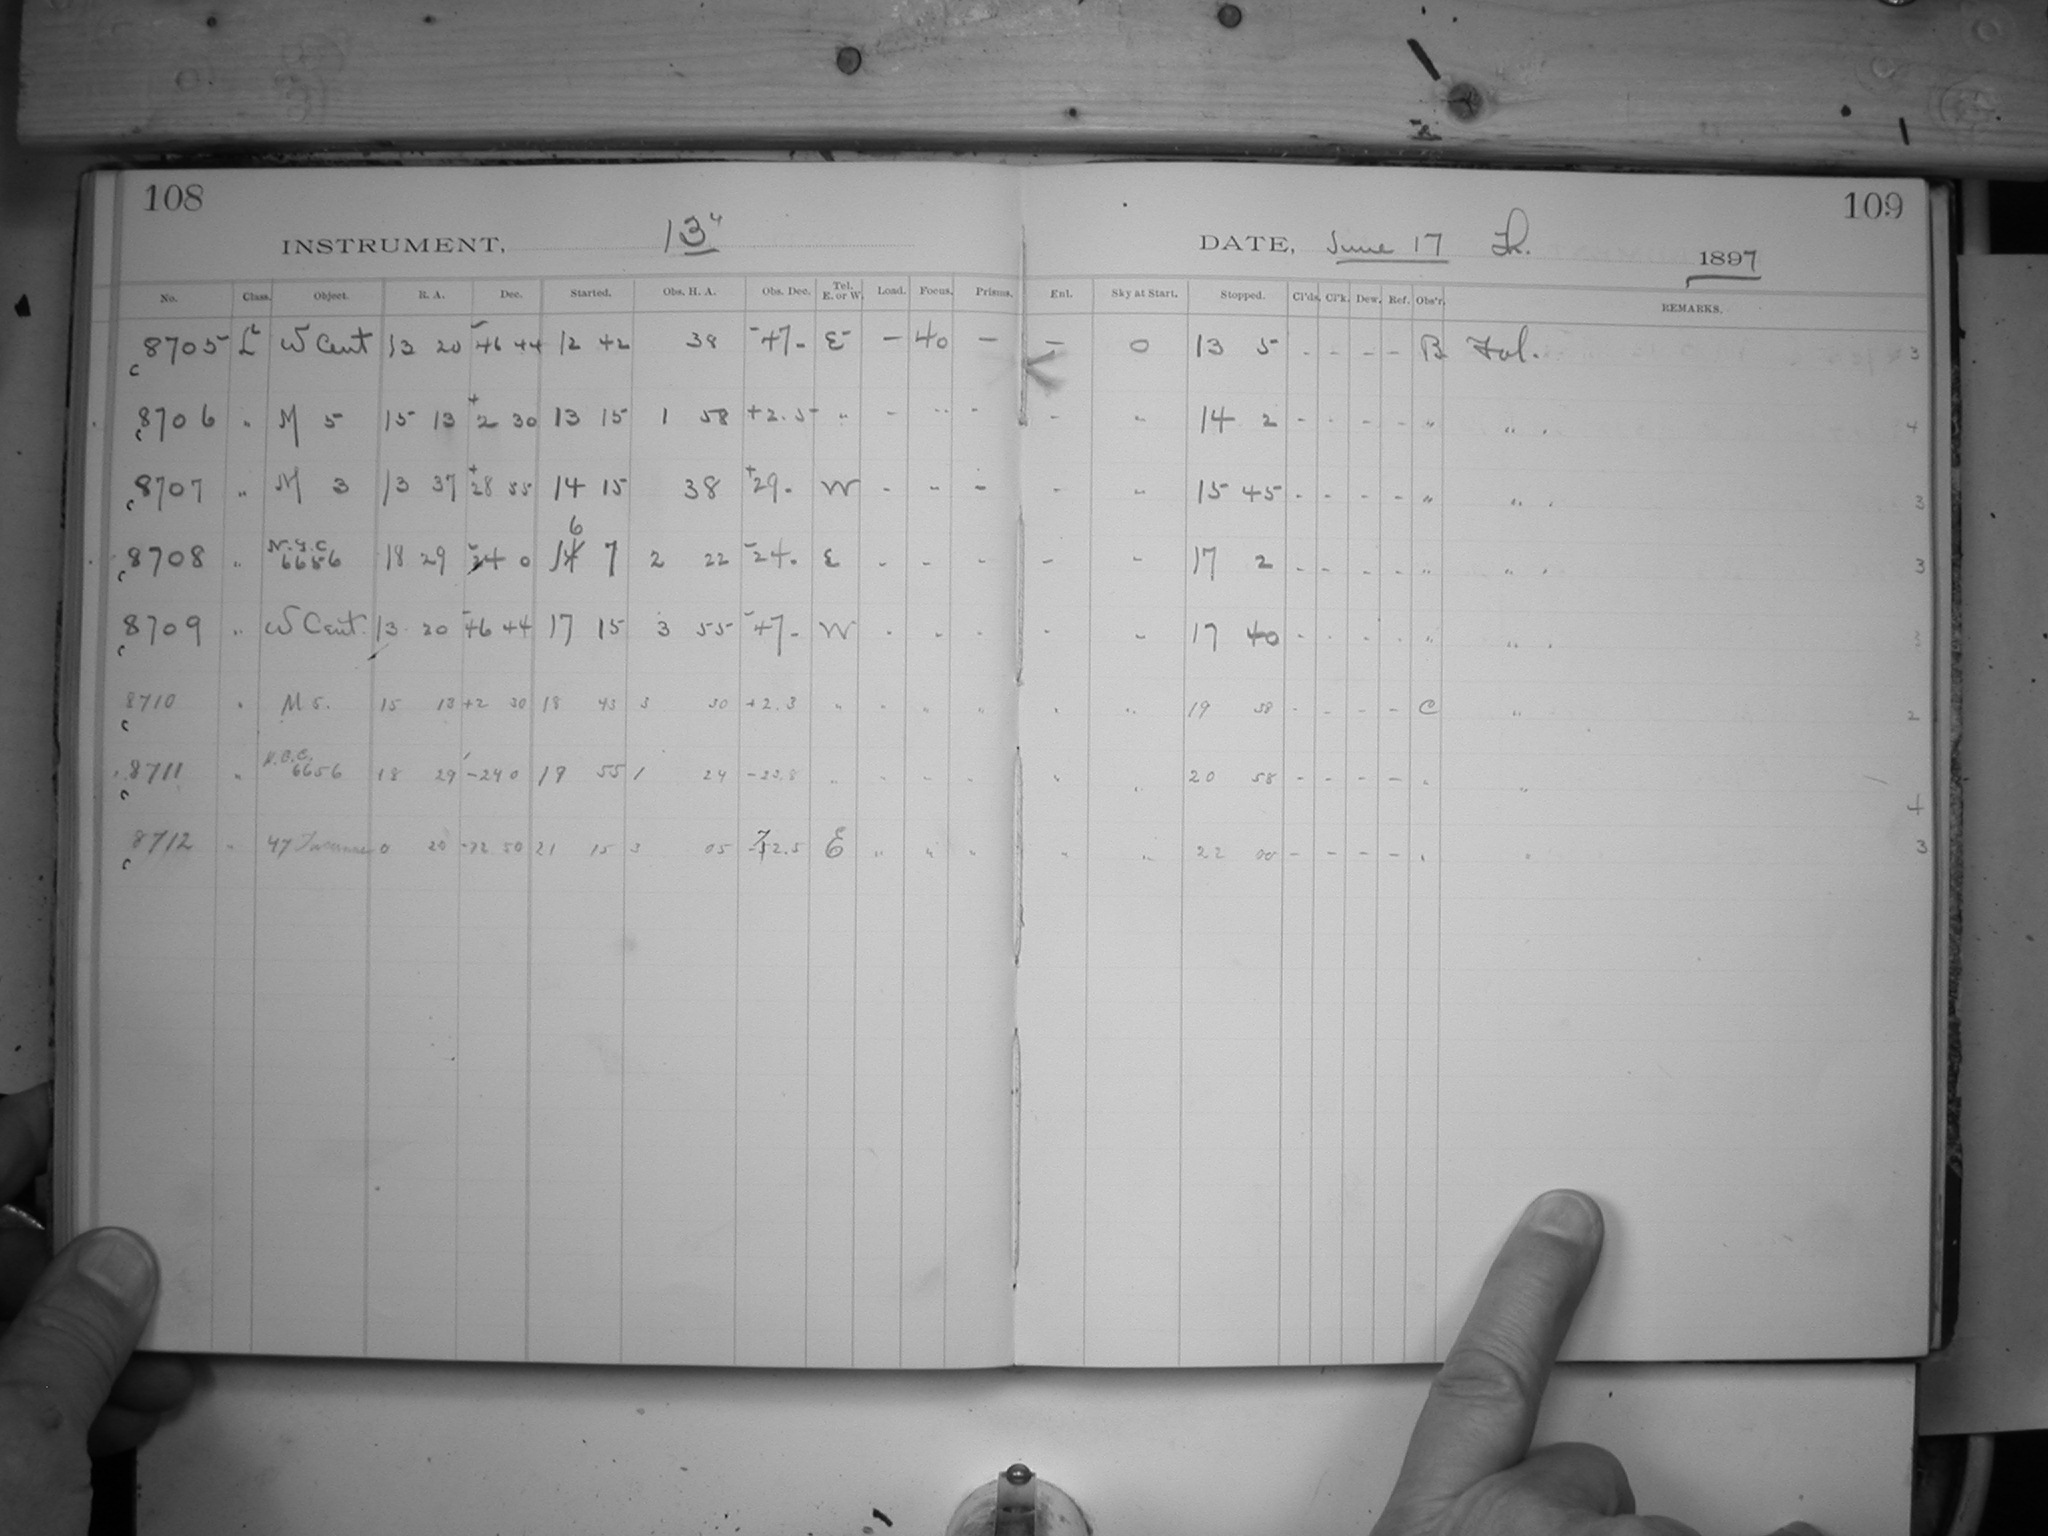 108
109
INSTRUMENT, 13"
DATE, June 17 Th. 1897
No. Class. Object. R. A. Dec. Started. Obs. H. A. Obs. Dec. Tel. E. or W. Load. Focus. Prisms. Enl. Sky at Start. Stopped. Cl'ds. Cl'k. Dew. Ref. Obs'r. REMARKS.
c 8705 L ω Cent 13 20 -46 44 12 42 38 -47. E - 40 - - 0 13 5 - - - - B Fol. 3
c 8706 " M 5 15 13 +2 30 13 15 1 58 +2.5 " - " - - " 14 2 - - - - " " . 4
c 8707 " M 3 13 37 +28 55 14 15 38 +29. W - - - - " 15 45 - - - - " " . 3
c 8708 " N.G.C. 6656 18 29 -24 0 16 7 2 22 -24. E - - - - - 17 2 - - - - " " . 3
c 8709 " ω Cent. 13 20 -46 44 17 15 3 55 -47. W - - - - " 17 40 - - - - " " . 3
c 8710 " M 5. 15 13 +2 30 18 43 3 30 +2.3 " " " " " " 19 38 - - - - C " 2
c 8711 " N.G.C. 6656 18 29 -24 0 19 55 1 24 -23.8 " " " " " " 20 58 - - - - " " 4
c 8712 " 47 0 20 -72 50 21 15 3 05 -72.5 E " " " " " 22 00 - - - - " " 3